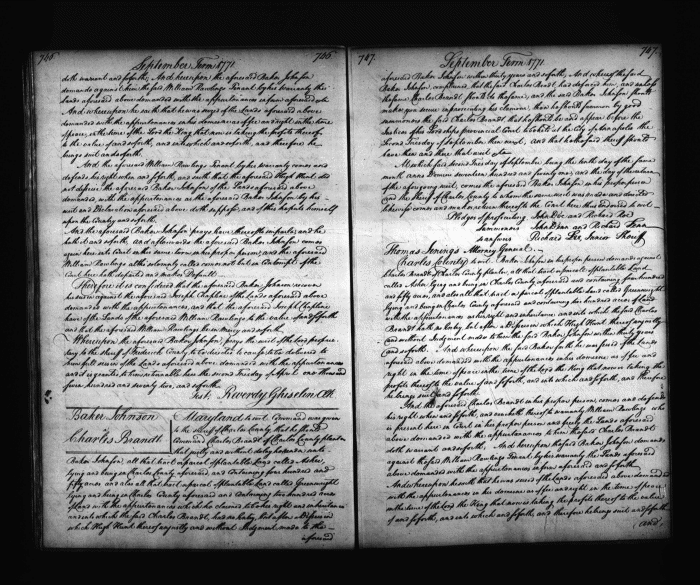 746.
September Term 1771
746.
doth warrant and soforth; And hereupon the aforesaid Baker Johnson
demands against him the said William Rawlings Tenant by his warranty the
Lands aforesaid above demanded with the appurtenances in form aforesaid
And whereupon he saith that he was seized of the Lands aforesaid above
demanded with the appurtenances in his demesne as of fee and right in the time
of peace in the time of the Lord the King that now is taking the profits thereof
to the value of and soforth, and into which and soforth, and therefore he
brings suit and soforth.
And the aforesaid William Rawlings Tenant by his warranty comes and
defends his right when and soforth, and saith that the aforesaid Hugh Hunt did
not disseise the aforesaid Baker Johnson of the Lands aforesaid above
demanded, with the appurtenances as the aforesaid Baker Johnson by his
writ and Declaration aforesaid above doth suppose, and of this he puts himself
upon the Country and soforth.
And the aforesaid Baker Johnson prays leave thereof to imparle, and he
hath it and soforth, and afterwards the aforesaid Baker Johnson comes
again here into Court in this same Term in his proper person, and the aforesaid
William Rawlings altho solemnly called comes not but in Contempt of the
Court here hath departed and makes Default
Therefore it is considered that the aforesaid Baker Johnson recover
his seizin against the aforesaid Joseph Chapline of the Lands aforesaid above
demanded with the appurtenances, and that the aforesaid Joseph Chapline
have of the Lands of the aforesaid William Rawlings to the value and soforth
and that the aforesaid William Rawlings be in Mercy and soforth.
Whereupon the aforesaid Baker Johnson prays the writ of the Lord proprietary
to the sheriff of Frederick County to be directed to cause to be delivered to
him full seizin of the Lands aforesaid above demanded with the appurtenances
and it is granted to him returnable here the second Tuesday of April one thousand
seven hundred and seventy two, and soforth.
Test, Reverdy Ghiselin Clk.
Baker Johnson
Charles Brandt
Maryland to wit Command was given
to the sheriff of Charles County that he should
Command Charles Brandt of Charles County planter
that justly and without delay he render unto
Baker Johnson all that tract or parcel of plantable Land called
lying and being in Charles County aforesaid and Containing four hundred and
fifty one, and also all that tract or parcel of plantable Land called Greenweight
lying and being in Charles County aforesaid and Containing two hundred acres
of Land with the appurtenances which he claimed to be his right and inheritance
and into which the said Charles Brandt hath no entry, but after a Disseizin
which Hugh Hunt thereof unjustly and without Judgment made to the
aforesaid
747.
September Term 1771
747.
aforesaid Baker Johnson within thirty years and soforth; And whereof the said
Baker Johnson complained, that the said Charles Brandt had deforced him, and unless
the same Charles Brandt should do the same, and the said Baker Johnson should
make you secure in prosecuting his Claim, then he should summon by good
summoners the said Charles Brandt that he should be and appear before the
Justices of the Lord the provincial Court to be held at the City of Annapolis the
second Tuesday of September then next, and that he should have
there and then that writ
At which said second Tuesday of September being the tenth day of the same
month anno Domini seventeen hundred and seventy one and the day of the return
of the aforegoing writ, comes the aforesaid Baker Johnson in his proper person
and the Sheriff of Charles County to whom the same writ was in form directed
likewise comes and makes return thereof to the Court here thus endorsed to wit
Pledges of prosecuting John Doe and Richard Roe
Summoners John Dean and Richard Fenn
answers Richard Lee, Junior Sheriff
Thomas Jenings Attorney General
Charles County to wit Baker Johnson in his proper person demands against
Charles Brandt of Charles County planter, all that tract or parcel of plantable Land
called lying and being in Charles County aforesaid and containing four hundred
and fifty one, and also all that tract or parcel of plantable Land called Greenweight
lying and being in Charles County aforesaid and containing two hundred acres of Land
with the appurtenances as his right and inheritance and into which the said Charles
Brandt hath no entry but after a Disseizin which Hugh Hunt thereof unjustly
and without Judgment made to him the said Baker Johnson within thirty years
and soforth. And whereupon the said Baker saith he was seized of the Lands
aforesaid above demanded with the appurtenances in his demesne as of fee and
right in the time of peace in the time of the Lord the King that now is taking the
profits thereof to the value of and soforth, and into which and soforth, and therefore
he brings suit and soforth.
And the aforesaid Charles Brandt in his proper person, comes and defends
his right when and soforth, and voucheth thereof to warranty William Rawlings who
is present here in Court in his proper person and freely the Lands aforesaid
above demanded with the appurtenances to him the said Charles Brandt
doth warrant and soforth. And hereupon the said Baker Johnson demands
against the said William Rawlings Tenant by his warranty the Lands aforesaid
above demanded with the appurtenances in form aforesaid and soforth
And whereupon he saith that he was seized of the Lands aforesaid above demanded
with the appurtenances in his demesne as of fee and right in the time of peace
in the time of the Lord the King that now is taking the profits thereof to the value
of and soforth, and into which and soforth, and therefore he brings suit and soforth
And